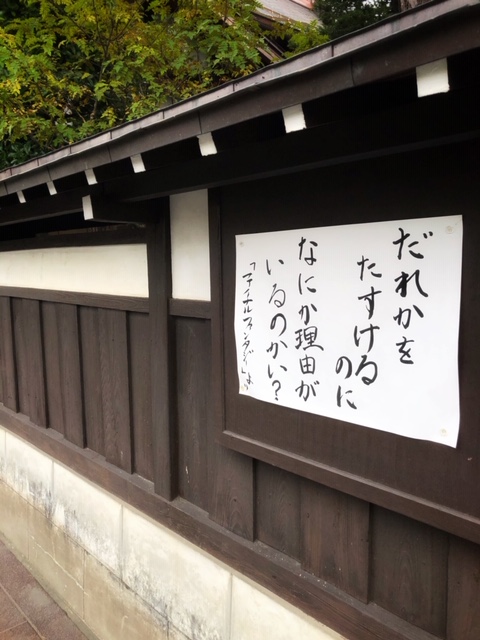 だれかを
たすける
のに
なにか理由が
いるのかい?
「ファイナルファンタジー」より